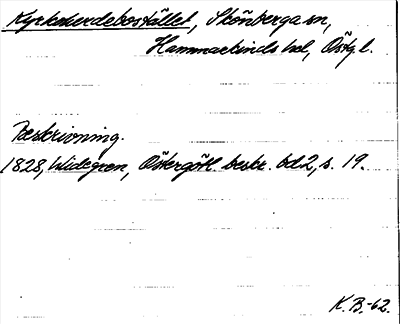 Kyrkoherdebostället, Skönberga sn,
Hammarkinds hd, Östg.l.
Beskrivning.
1828, Widegren, Östergötl. beskr. bd 2, s. 19.
K.B.-62.